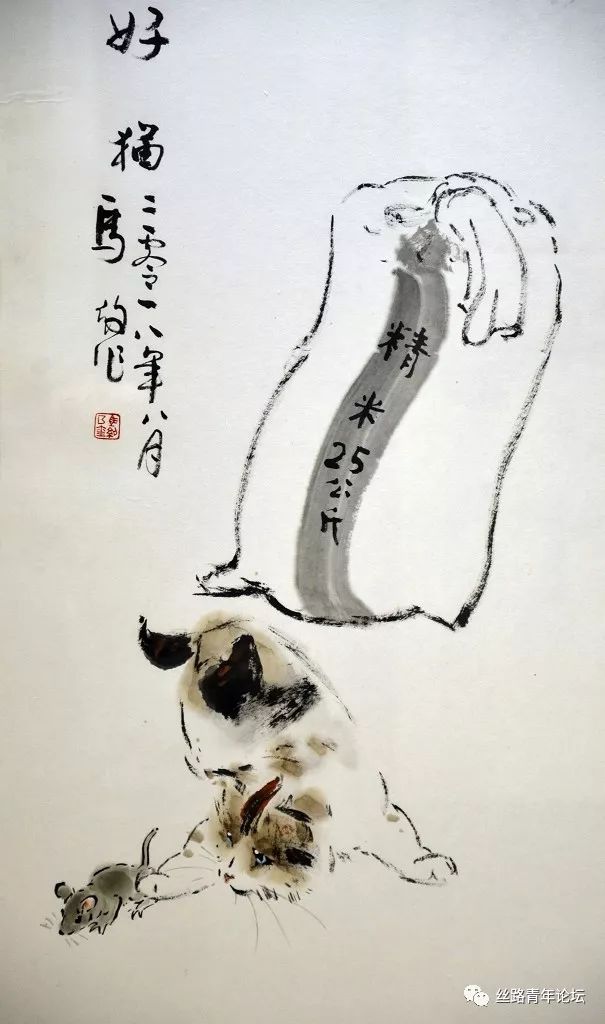 好猫
二零一八年八月
馬 作
精米25公斤
丝路青年论坛